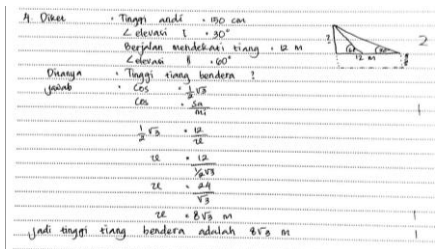 4. Diket : Tinggi andi = 150 cm
∠ elevasi I = 30°
Berjalan mendekati tiang = 12 m
∠ elevasi II = 60°
?
12 m
2
Ditanya : Tinggi tiang bendera ?
Jawab : Cos = 1/2 √3
Cos = sa/mi
1
1/2 √3 = 12/x
x = 12/(1/2 √3)
x = 24/√3
x = 8√3 m
1
Jadi tinggi tiang bendera adalah 8√3 m
1